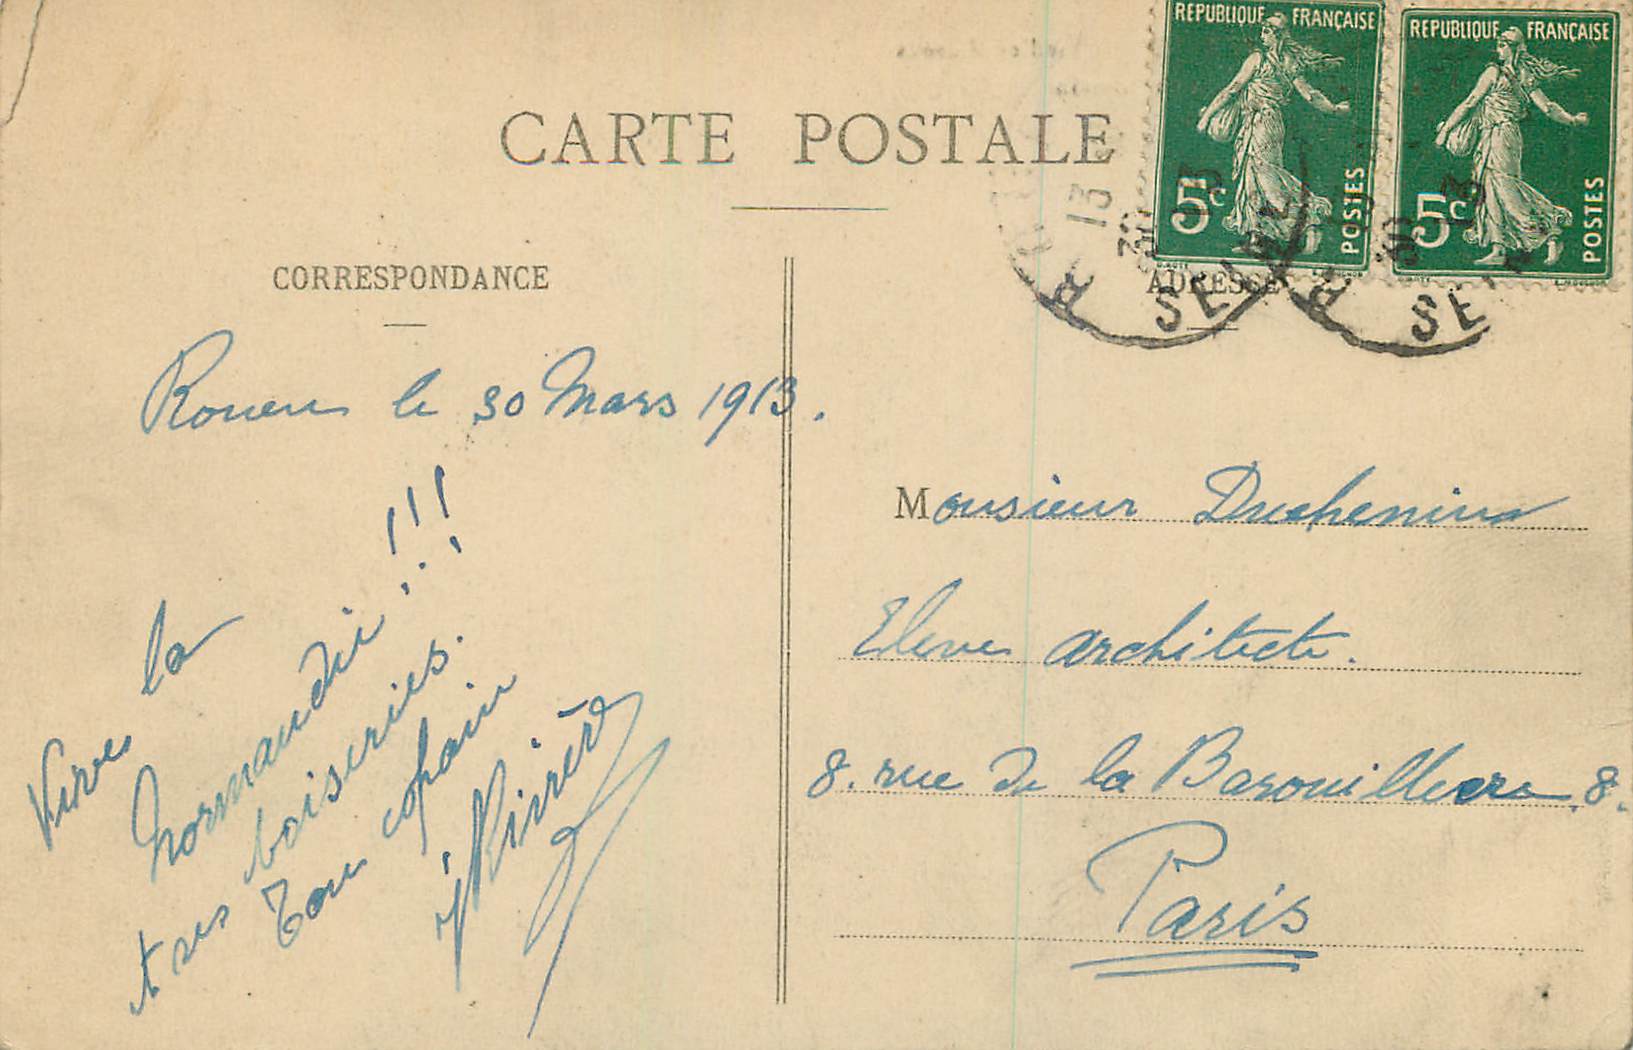 REPUBLIQUE FRANÇAISE
5c
POSTES
REPUBLIQUE FRANÇAISE
5c
POSTES
CARTE POSTALE
CORRESPONDANCE
ADRESSE
Rouen le 30 Mars 1913.
Vive la
Normandie !!!
et ses boiseries.
Ton copain
Monsieur Duchemin
Eleve architecte.
8. rue de la Barouillere. 8.
Paris